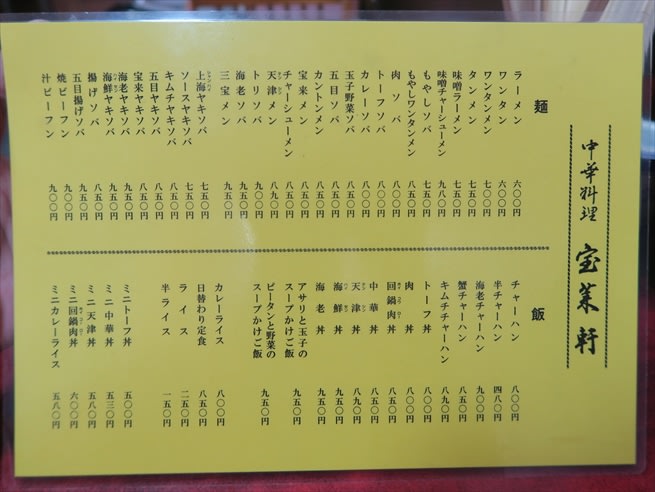 中華料理 宝莱軒
麺
ラーメン 六〇〇円
ワンタン 六〇〇円
ワンタンメン 七〇〇円
タンメン 七五〇円
味噌ラーメン 七五〇円
味噌チャーシューメン 九八〇円
もやしソバ 七五〇円
もやしワンタンメン 八五〇円
肉ソバ 八〇〇円
トーフソバ 八〇〇円
カレーソバ 八〇〇円
玉子野菜ソバ 八五〇円
五目ソバ 八五〇円
カントンメン 八五〇円
宝来メン 八五〇円
チャーシューメン 八五〇円
天津メン 八九〇円
トリソバ 九〇〇円
海老ソバ 九五〇円
三宝メン 九五〇円
上海ヤキソバ 七五〇円
ソースヤキソバ 七五〇円
キムチヤキソバ 八五〇円
五目ヤキソバ 八五〇円
宝来ヤキソバ 八五〇円
海老ヤキソバ 九五〇円
海鮮ヤキソバ 九五〇円
揚げソバ 八五〇円
五目揚げソバ 九五〇円
焼ビーフン 九〇〇円
汁ビーフン 九〇〇円
飯
チャーハン 八〇〇円
半チャーハン 四八〇円
海老チャーハン 九〇〇円
蟹チャーハン 八五〇円
キムチチャーハン 八九〇円
トーフ丼 八〇〇円
肉丼 八〇〇円
回鍋肉丼 八五〇円
中華丼 八五〇円
天津丼 八九〇円
海鮮丼 九五〇円
海老丼 九五〇円
アサリと玉子の
スープかけご飯 九五〇円
ピータンと野菜の
スープかけご飯 九五〇円
カレーライス 八〇〇円
日替わり定食 八五〇円
ライス 二五〇円
半ライス 一五〇円
ミニトーフ丼 五〇〇円
ミニ中華丼 五三〇円
ミニ天津丼 五八〇円
ミニ回鍋肉丼 六〇〇円
ミニカレーライス 五八〇円